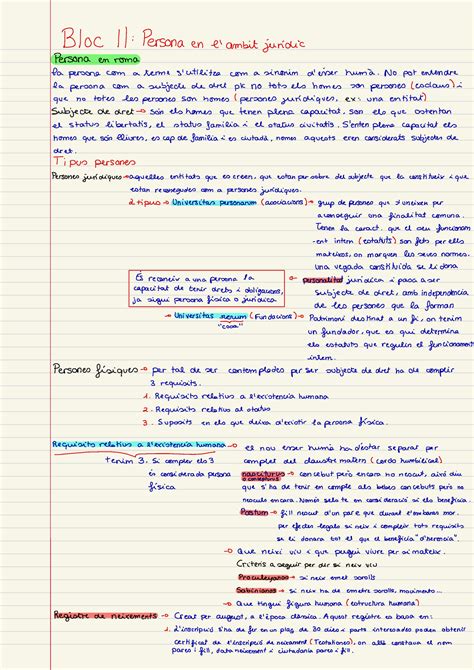 Bloc II: Persona en l'àmbit jurídic
Persona en roma
La persona com a terme s'utilitza com a sinonim d'ésser humà. No pot entendre
la persona com a subjecte de dret pk no tots els homes son persones (esclaus) i
que no totes les persones son homes (persones jurídiques, ex: una entitat)
Subjecte de dret → Són els homes que tenen plena capacitat, son els que ostenten
el status libertatis, el status familia i el status civitatis. S'enten plena capacitat els
homes que són lliures, es cap de família i es ciutadà, nomes aquests eren considerats subjectes de
dret.
Tipus persones
Persones jurídiques → aquelles entitats que es creen, que estan per sobre del subjecte que la constitueix i que
estan reconegudes com a persones jurídiques.
2 tipus → Universitas personarum (associacions) → grup de persones que s'uneixen per
aconseguir una finalitat comuna.
Tenen la caract. que el seu funcionam
-ent intern (estatuts) son fets per ells
mateixos, on marquen les seves normes.
una vegada constituïda se li dona
personalitat jurídica i passa a ser
Subjecte de dret, amb independència
de les persones que la formen
És reconeixer a una persona la
capacitat de tenir drets i obligacions,
ja sigui persona física o jurídica
→ Universitas rerum (Fundacions) → Patrimoni destinat a un fi, on tenim
"cosa"
un fundador, que es qui determina
els estatuts que regulen el funcionament
intern.
Persones físiques → per tal de ser contemplades per ser subjecte de dret ha de complir
3 requisits.
1. Requisits relatius a l'existencia humana
2. Requisits relatius al status
3. Supòsits en els que deixa d'existir la persona física.
Requisits relatius a l'existencia humana → es nou esser humà ha d'estar separat per
tenim 3. Si compleix els 3
és considerada persona
física
complet del claustre matern (cordo umbilical)
nasciturus → concebut però encara no nascut, això diu
o conceptus
que s'ha de tenir en compte als bebes concebuts però no
nascuts encara. Només se'ls te en consideració si els beneficia.
Postum → fill nascut d'un pare que durant l'embaràs mor.
per efectes legals si neix i compleix tots requisits
se li donara tot el que el beneficia "d'herencia".
→ Que neixi viu i que pugui viure per si mateix.
Criteris a seguir per dir si neix viu
Proculeyans → si neix emet sorolls
Sabinianos → si neix ha de emetre sorolls, moviments...
→ Que tingui figura humana (estructura humana)
Registre de naixements → Creat per august, a l'època clàssica. Aquest registre es basa en:
1. l'inscripció s'ha de fer en un plaç de 30 dies i parts interessades poden obtenir
certificat de l'inscripció de naixement (Testationes), on allà constava el nom
pares i fill, data naixement i ciutadania pares i fill.